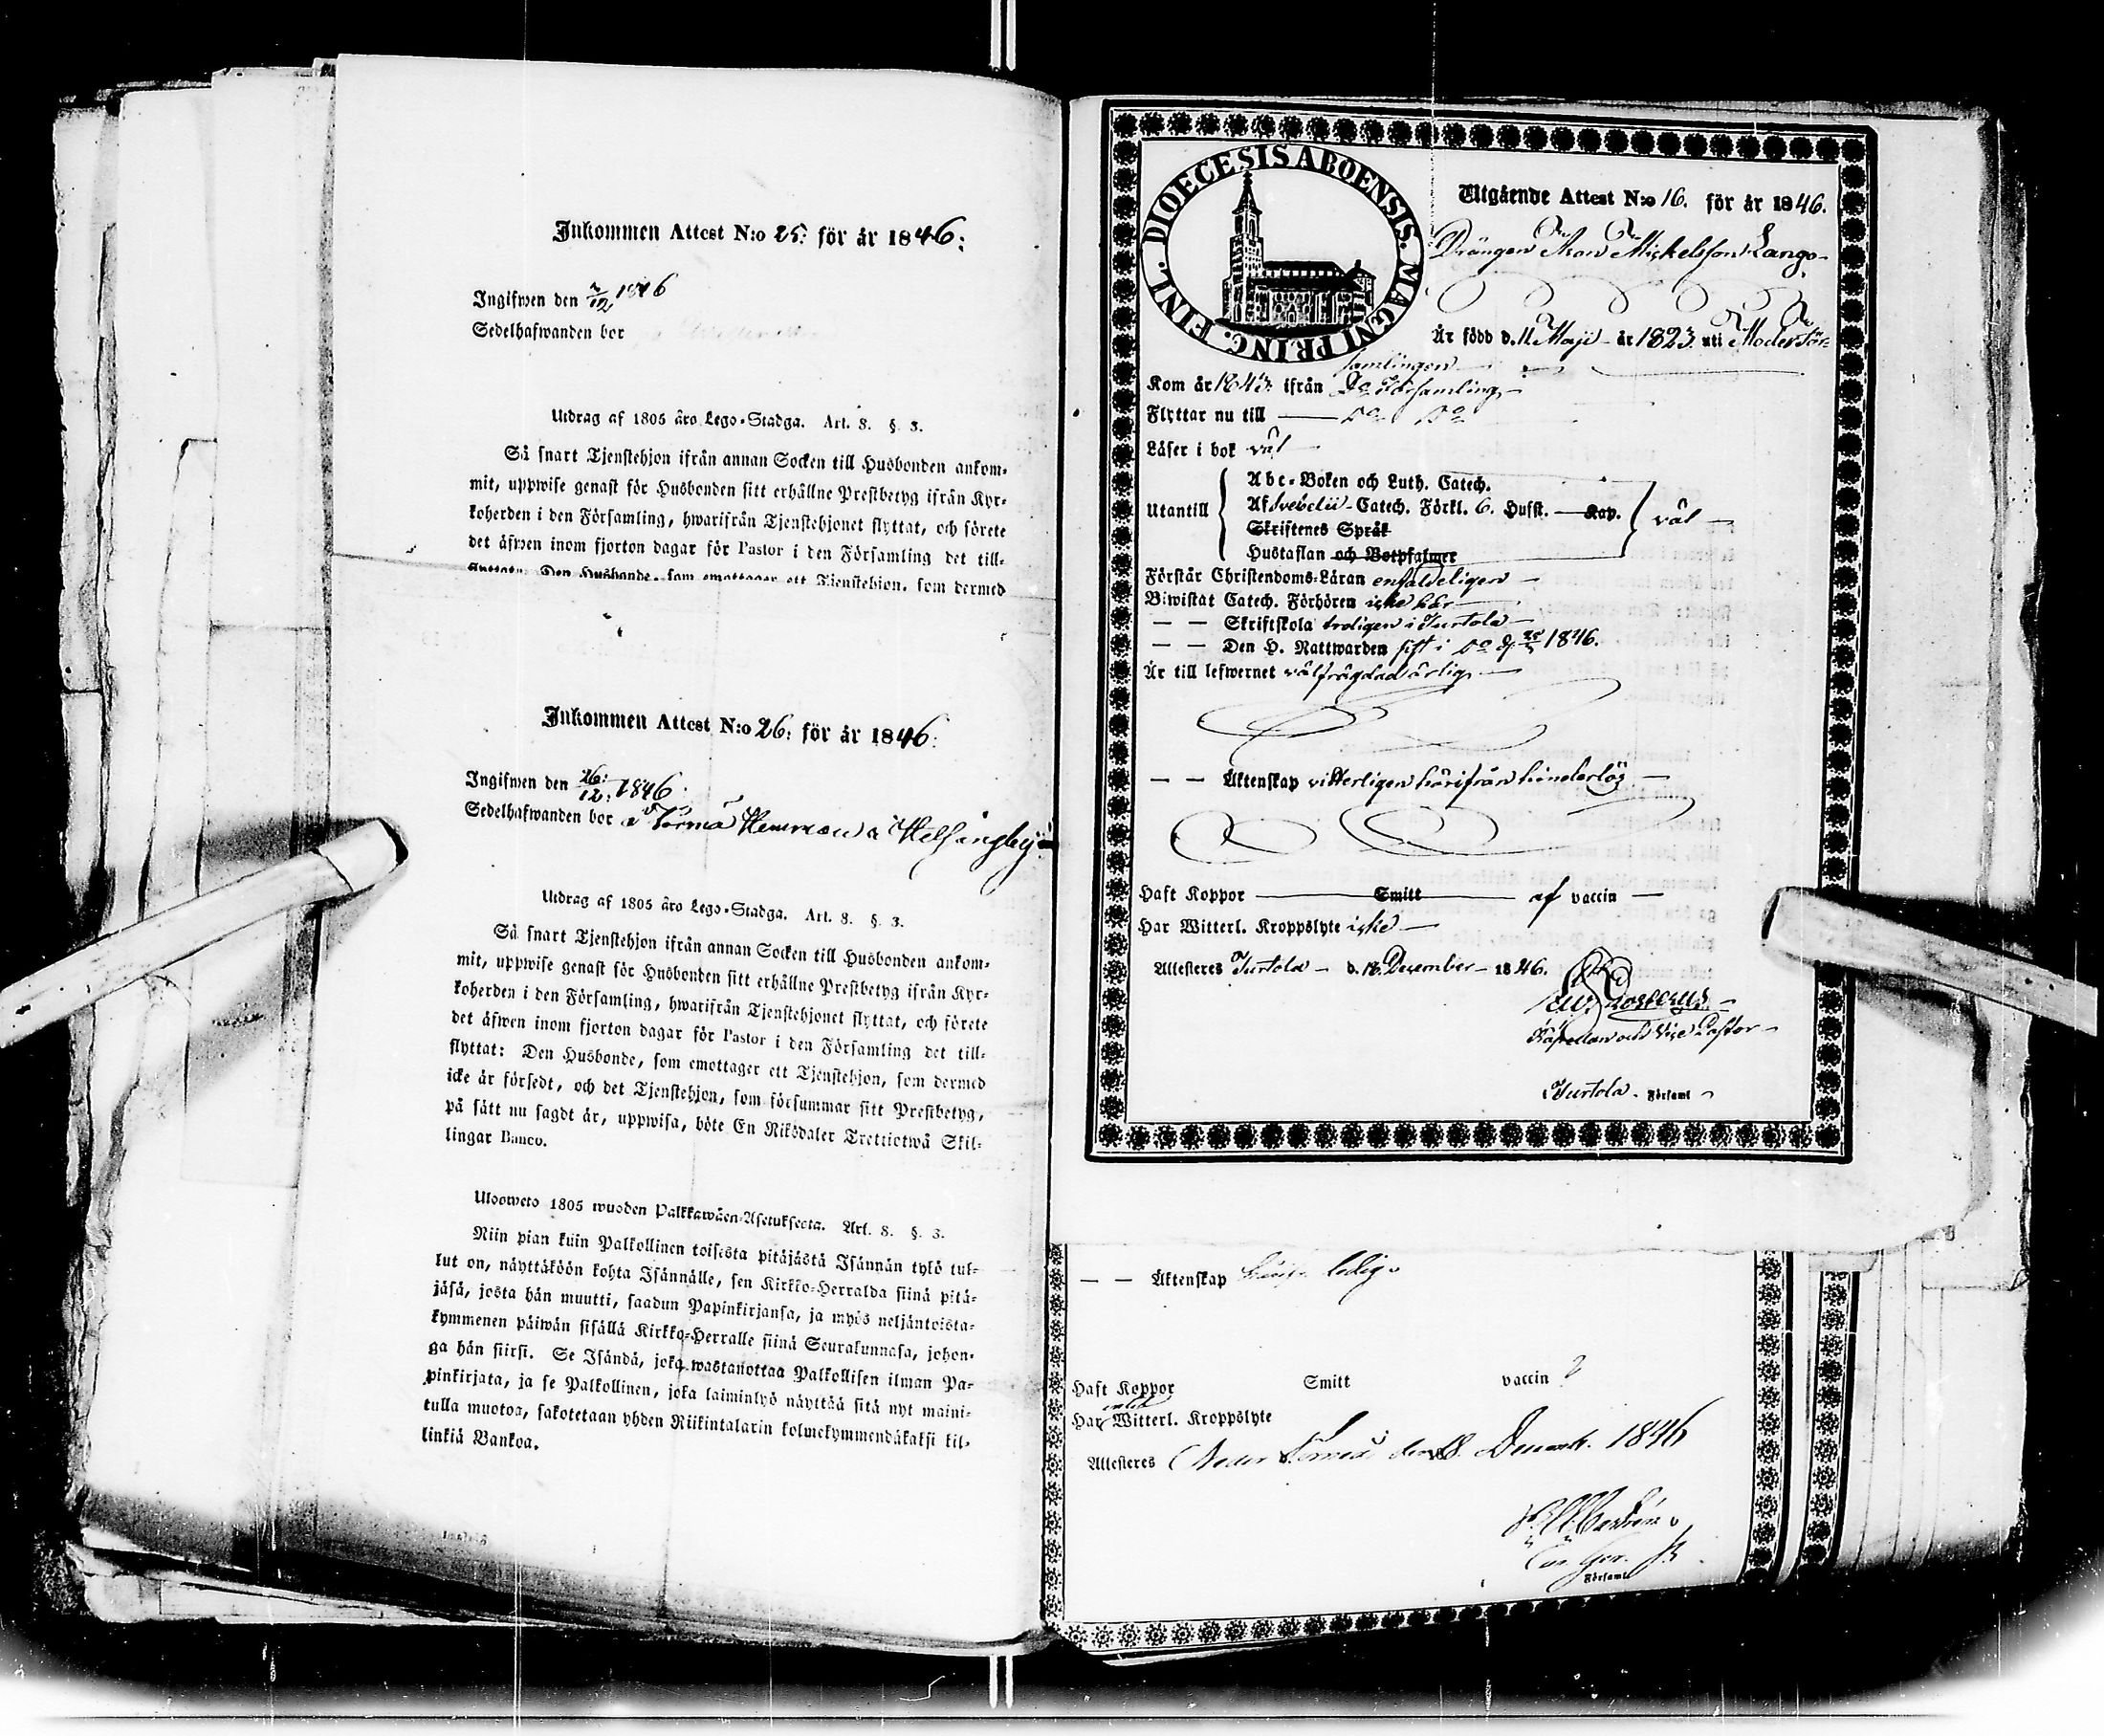 Inkommen Attest N:o 25. för år 1846.
Ingifwen den 2/12 1846
Sedelhafwanden bor
Utdrag af 1805 års Lego-Stadga. Art. 8. §. 3.
Så snart Tjenstehjon ifrån annan Socken till Husbonden ankom-
mit, uppwise genast för Husbonden sitt erhållne Prestbetyg ifrån Kyr-
koherden i den Församling, hwarifrån Tjenstehjonet flyttat, och förete
det äfwen inom fjorton dagar för Pastor i den Församling det till-
flyttat: Den Husbonde, som emottager ett Tjenstehjon, som dermed
Inkommen Attest N:o 26. för år 1846.
Ingifwen den 26/12 1846.
Sedelhafwanden bor å Helsingby
Utdrag af 1805 års Lego-Stadga. Art. 8. §. 3.
Så snart Tjenstehjon ifrån annan Socken till Husbonden ankom-
mit, uppwise genast för Husbonden sitt erhållne Prestbetyg ifrån Kyr-
koherden i den Församling, hwarifrån Tjenstehjonet flyttat, och förete
det äfwen inom fjorton dagar för Pastor i den Församling det till-
flyttat: Den Husbonde, som emottager ett Tjenstehjon, som dermed
icke är försedt, och det Tjenstehjon, som försummar sitt Prestbetyg,
på sätt nu sagdt är, uppwisa, böte En Riksdaler Trettiotwå Skil-
lingar Banco.
Ulosweto 1805 wuoden Palkkawäen-Asetuksesta. Art. 8. §. 3.
Niin pian kuin Palkollinen toisesta pitäjästä Isännän tykö tul-
lut on, näyttäköön kohta Isännälle, sen Kirkko-Herralda siinä pitä-
jäsä, josta hän muutti, saadun Papinkirjansa, ja myös neljäntoista-
kymmenen päiwän sisällä Kirkko-Herralle siinä Seurakunnasa, johon-
ga hän siirsi. Se Isändä, joka wastanottaa Palkollisen ilman Pa-
pinkirjata, ja se Palkollinen, joka laiminlyö näyttää sitä nyt maini-
tulla muotoa, sakotetaan yhden Riikintalarin kolmekymmendäkaksi kil-
linkiä Bankoa.
DIOECESIS ABOENSIS. MAGNI PRINC. FINL.
Utgående Attest N:o 16. för år 1846.
Drängen Mickelsson Lango
Är född d. 11 Maji år 1823. uti Moderför-
samlingen
Kom år 1843 ifrån Do Församling
Flyttar nu till Do Do
Läser i bok väl
Utantill
Abc-Boken och Luth. Catech.
Af Svebelii Catech. Förkl. 6. Hufst. Kap.
Skriftenes Språk
Hustaflan och Botpsalmer
väl
Förstår Christendoms-Läran enfaldeligen
Biwistat Catech. Förhören icke här
— — Skriftskola troligen i Jurtola
— — Den H. Nattwarden sist i Do d. 25/5 1846.
Är till lefwernet välfrägdad ärlig
— — Äktenskap vitterligen härifrån hinderlös
Haft Koppor Smitt af vaccin
Har Witterl. Kroppslyte icke
Attesteres Jurtola d. 18 December 1846.
Kapellan och Vice Pastor
Jurtola Församl
— — Äktenskap ledig
Haft Koppor Smitt vaccin ?
Har Witterl. Kroppslyte
Attesteres Neder Torneå den 8. Decemb. 1846
Församl